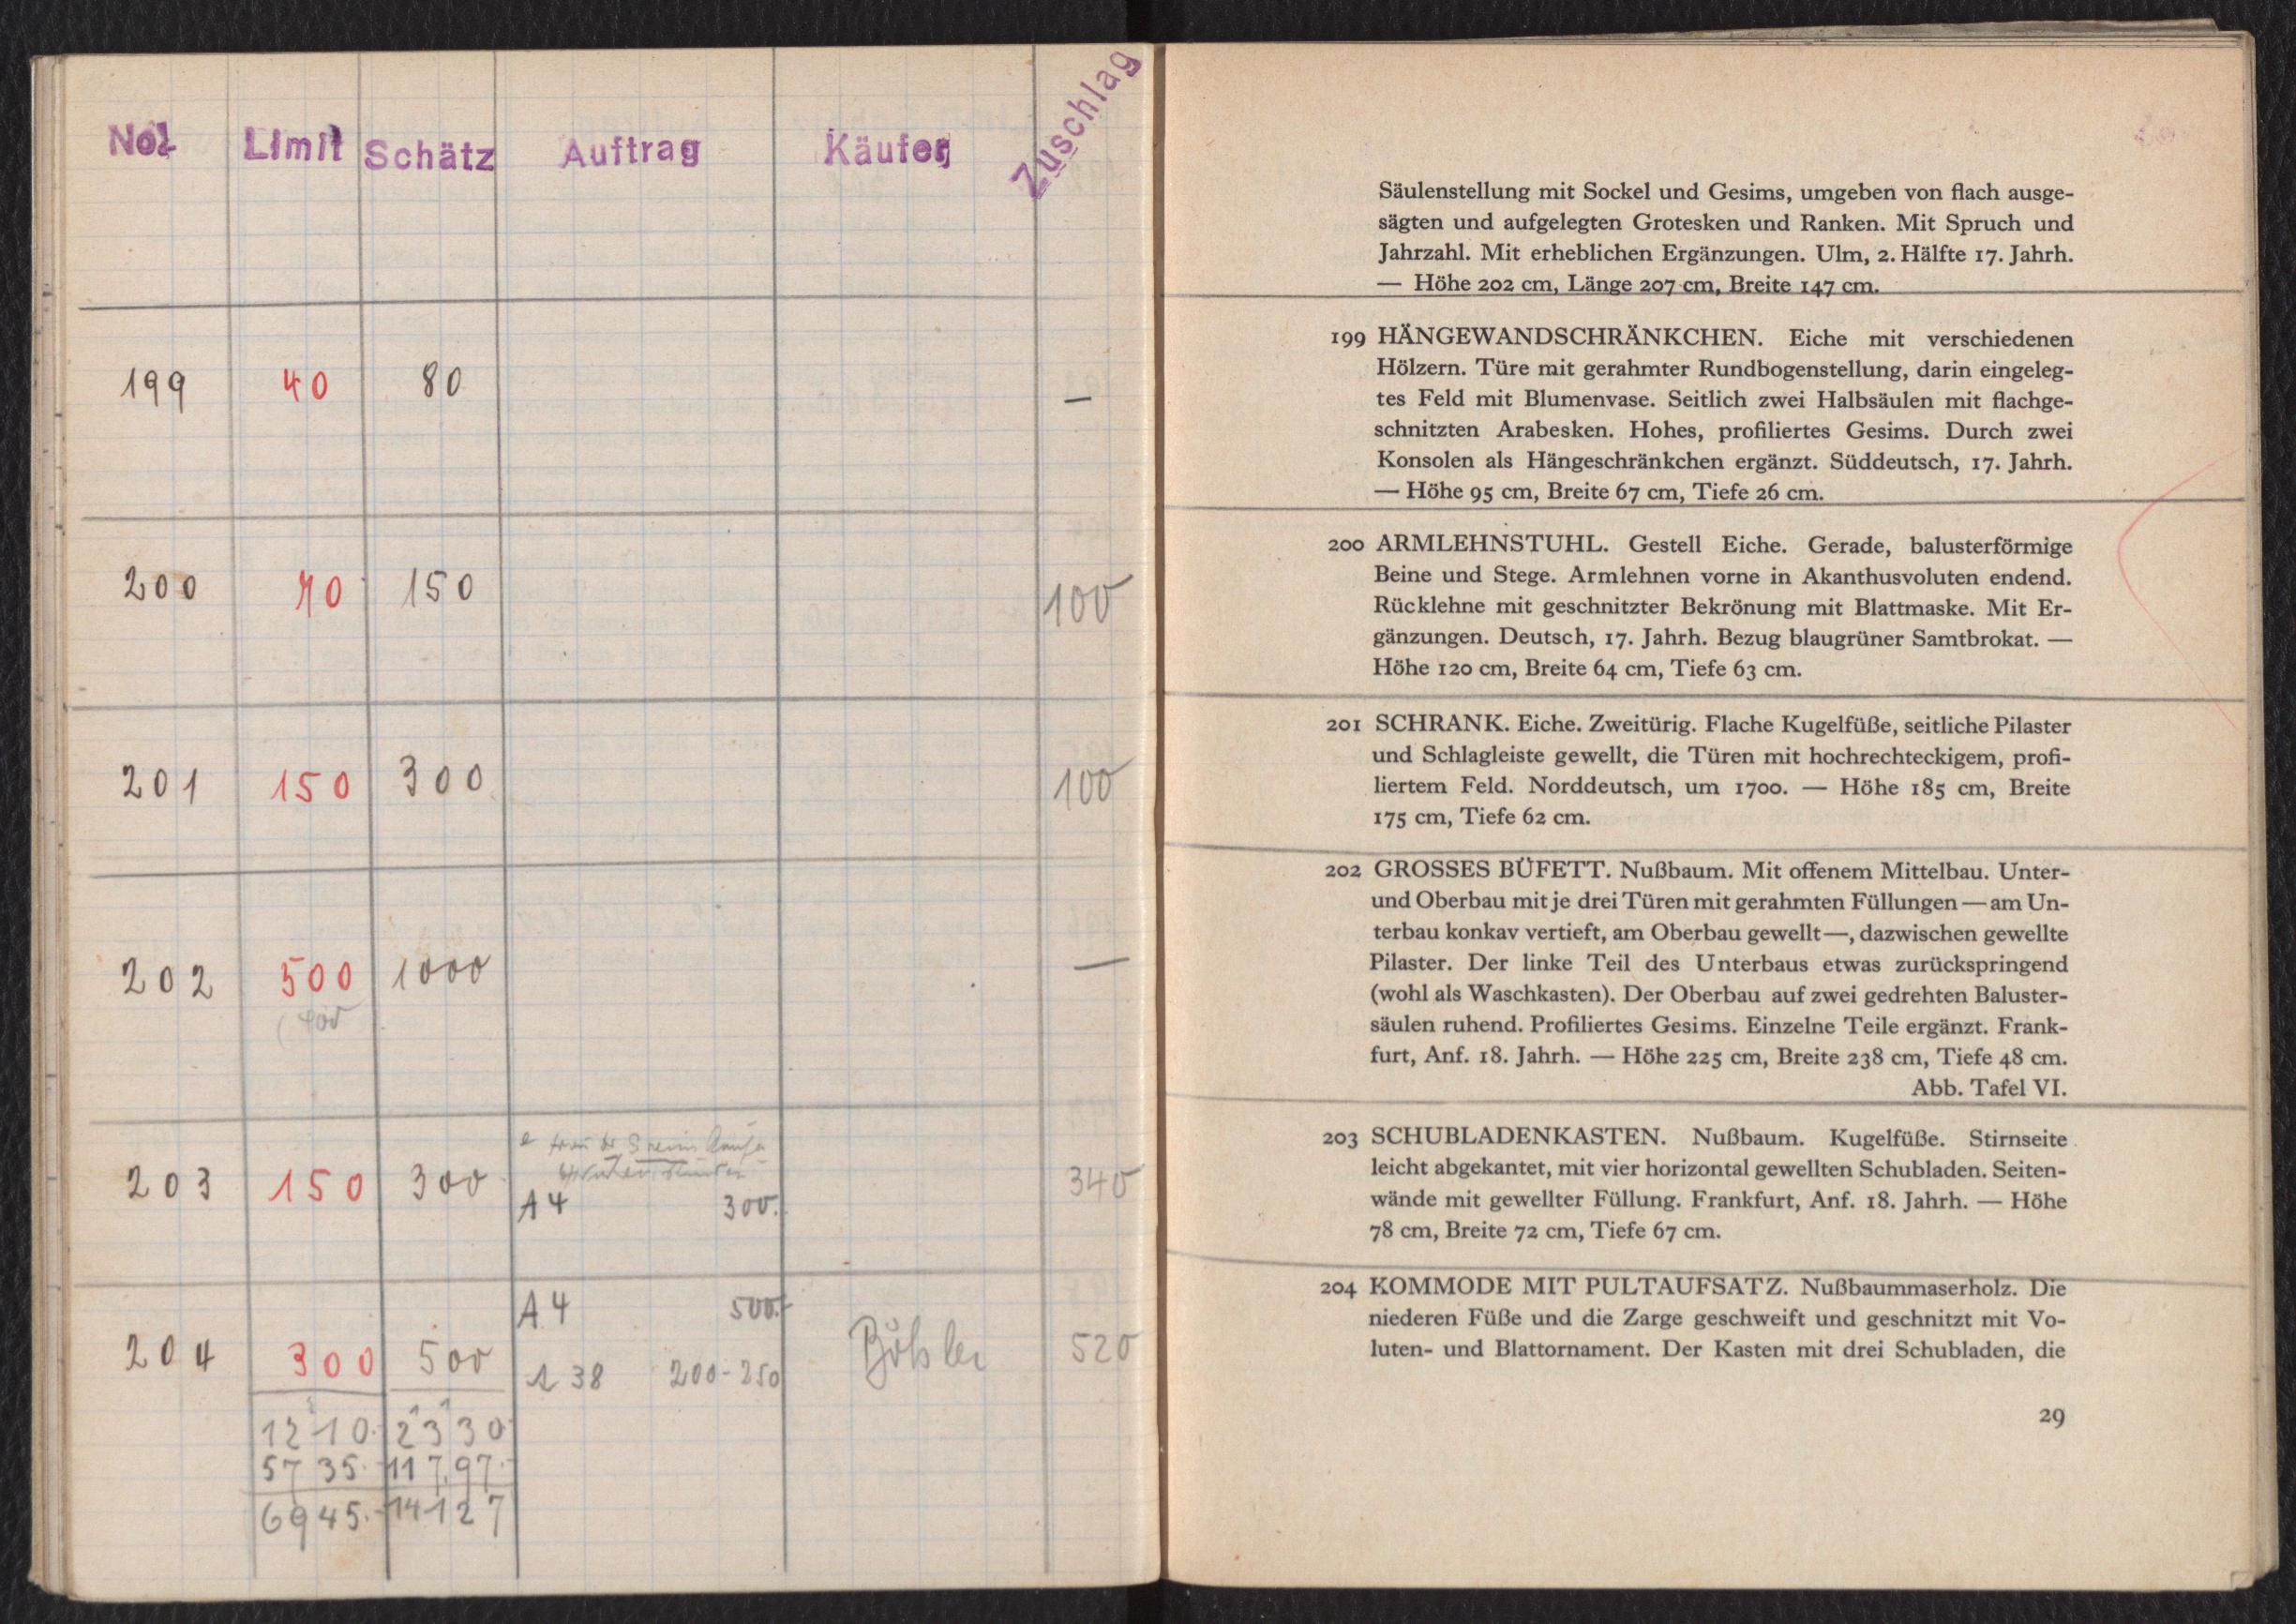 No. Limit Schätz Auftrag Käufer Zuschlag
199 40 80 —
200 70 150 100
201 150 300 100
202 500 1000 —
400
203 150 300 340
A 4 300.
A 4 500.-
204 300 500 520
1 38 200-250
1210.- 2330
5735.- 11797.-
6945.- 14127
Säulenstellung mit Sockel und Gesims, umgeben von flach ausge-
sägten und aufgelegten Grotesken und Ranken. Mit Spruch und
Jahrzahl. Mit erheblichen Ergänzungen. Ulm, 2. Hälfte 17. Jahrh.
— Höhe 202 cm, Länge 207 cm, Breite 147 cm.
199 HÄNGEWANDSCHRÄNKCHEN. Eiche mit verschiedenen
Hölzern. Türe mit gerahmter Rundbogenstellung, darin eingeleg-
tes Feld mit Blumenvase. Seitlich zwei Halbsäulen mit flachge-
schnitzten Arabesken. Hohes, profiliertes Gesims. Durch zwei
Konsolen als Hängeschränkchen ergänzt. Süddeutsch, 17. Jahrh.
— Höhe 95 cm, Breite 67 cm, Tiefe 26 cm.
200 ARMLEHNSTUHL. Gestell Eiche. Gerade, balusterförmige
Beine und Stege. Armlehnen vorne in Akanthusvoluten endend.
Rücklehne mit geschnitzter Bekrönung mit Blattmaske. Mit Er-
gänzungen. Deutsch, 17. Jahrh. Bezug blaugrüner Samtbrokat. —
Höhe 120 cm, Breite 64 cm, Tiefe 63 cm.
201 SCHRANK. Eiche. Zweitürig. Flache Kugelfüße, seitliche Pilaster
und Schlagleiste gewellt, die Türen mit hochrechteckigem, profi-
liertem Feld. Norddeutsch, um 1700. — Höhe 185 cm, Breite
175 cm, Tiefe 62 cm.
202 GROSSES BÜFETT. Nußbaum. Mit offenem Mittelbau. Unter-
und Oberbau mit je drei Türen mit gerahmten Füllungen — am Un-
terbau konkav vertieft, am Oberbau gewellt—, dazwischen gewellte
Pilaster. Der linke Teil des Unterbaus etwas zurückspringend
(wohl als Waschkasten). Der Oberbau auf zwei gedrehten Baluster-
säulen ruhend. Profiliertes Gesims. Einzelne Teile ergänzt. Frank-
furt, Anf. 18. Jahrh. — Höhe 225 cm, Breite 238 cm, Tiefe 48 cm.
Abb. Tafel VI.
203 SCHUBLADENKASTEN. Nußbaum. Kugelfüße. Stirnseite
leicht abgekantet, mit vier horizontal gewellten Schubladen. Seiten-
wände mit gewellter Füllung. Frankfurt, Anf. 18. Jahrh. — Höhe
78 cm, Breite 72 cm, Tiefe 67 cm.
204 KOMMODE MIT PULTAUFSATZ. Nußbaummaserholz. Die
niederen Füße und die Zarge geschweift und geschnitzt mit Vo-
luten- und Blattornament. Der Kasten mit drei Schubladen, die
29